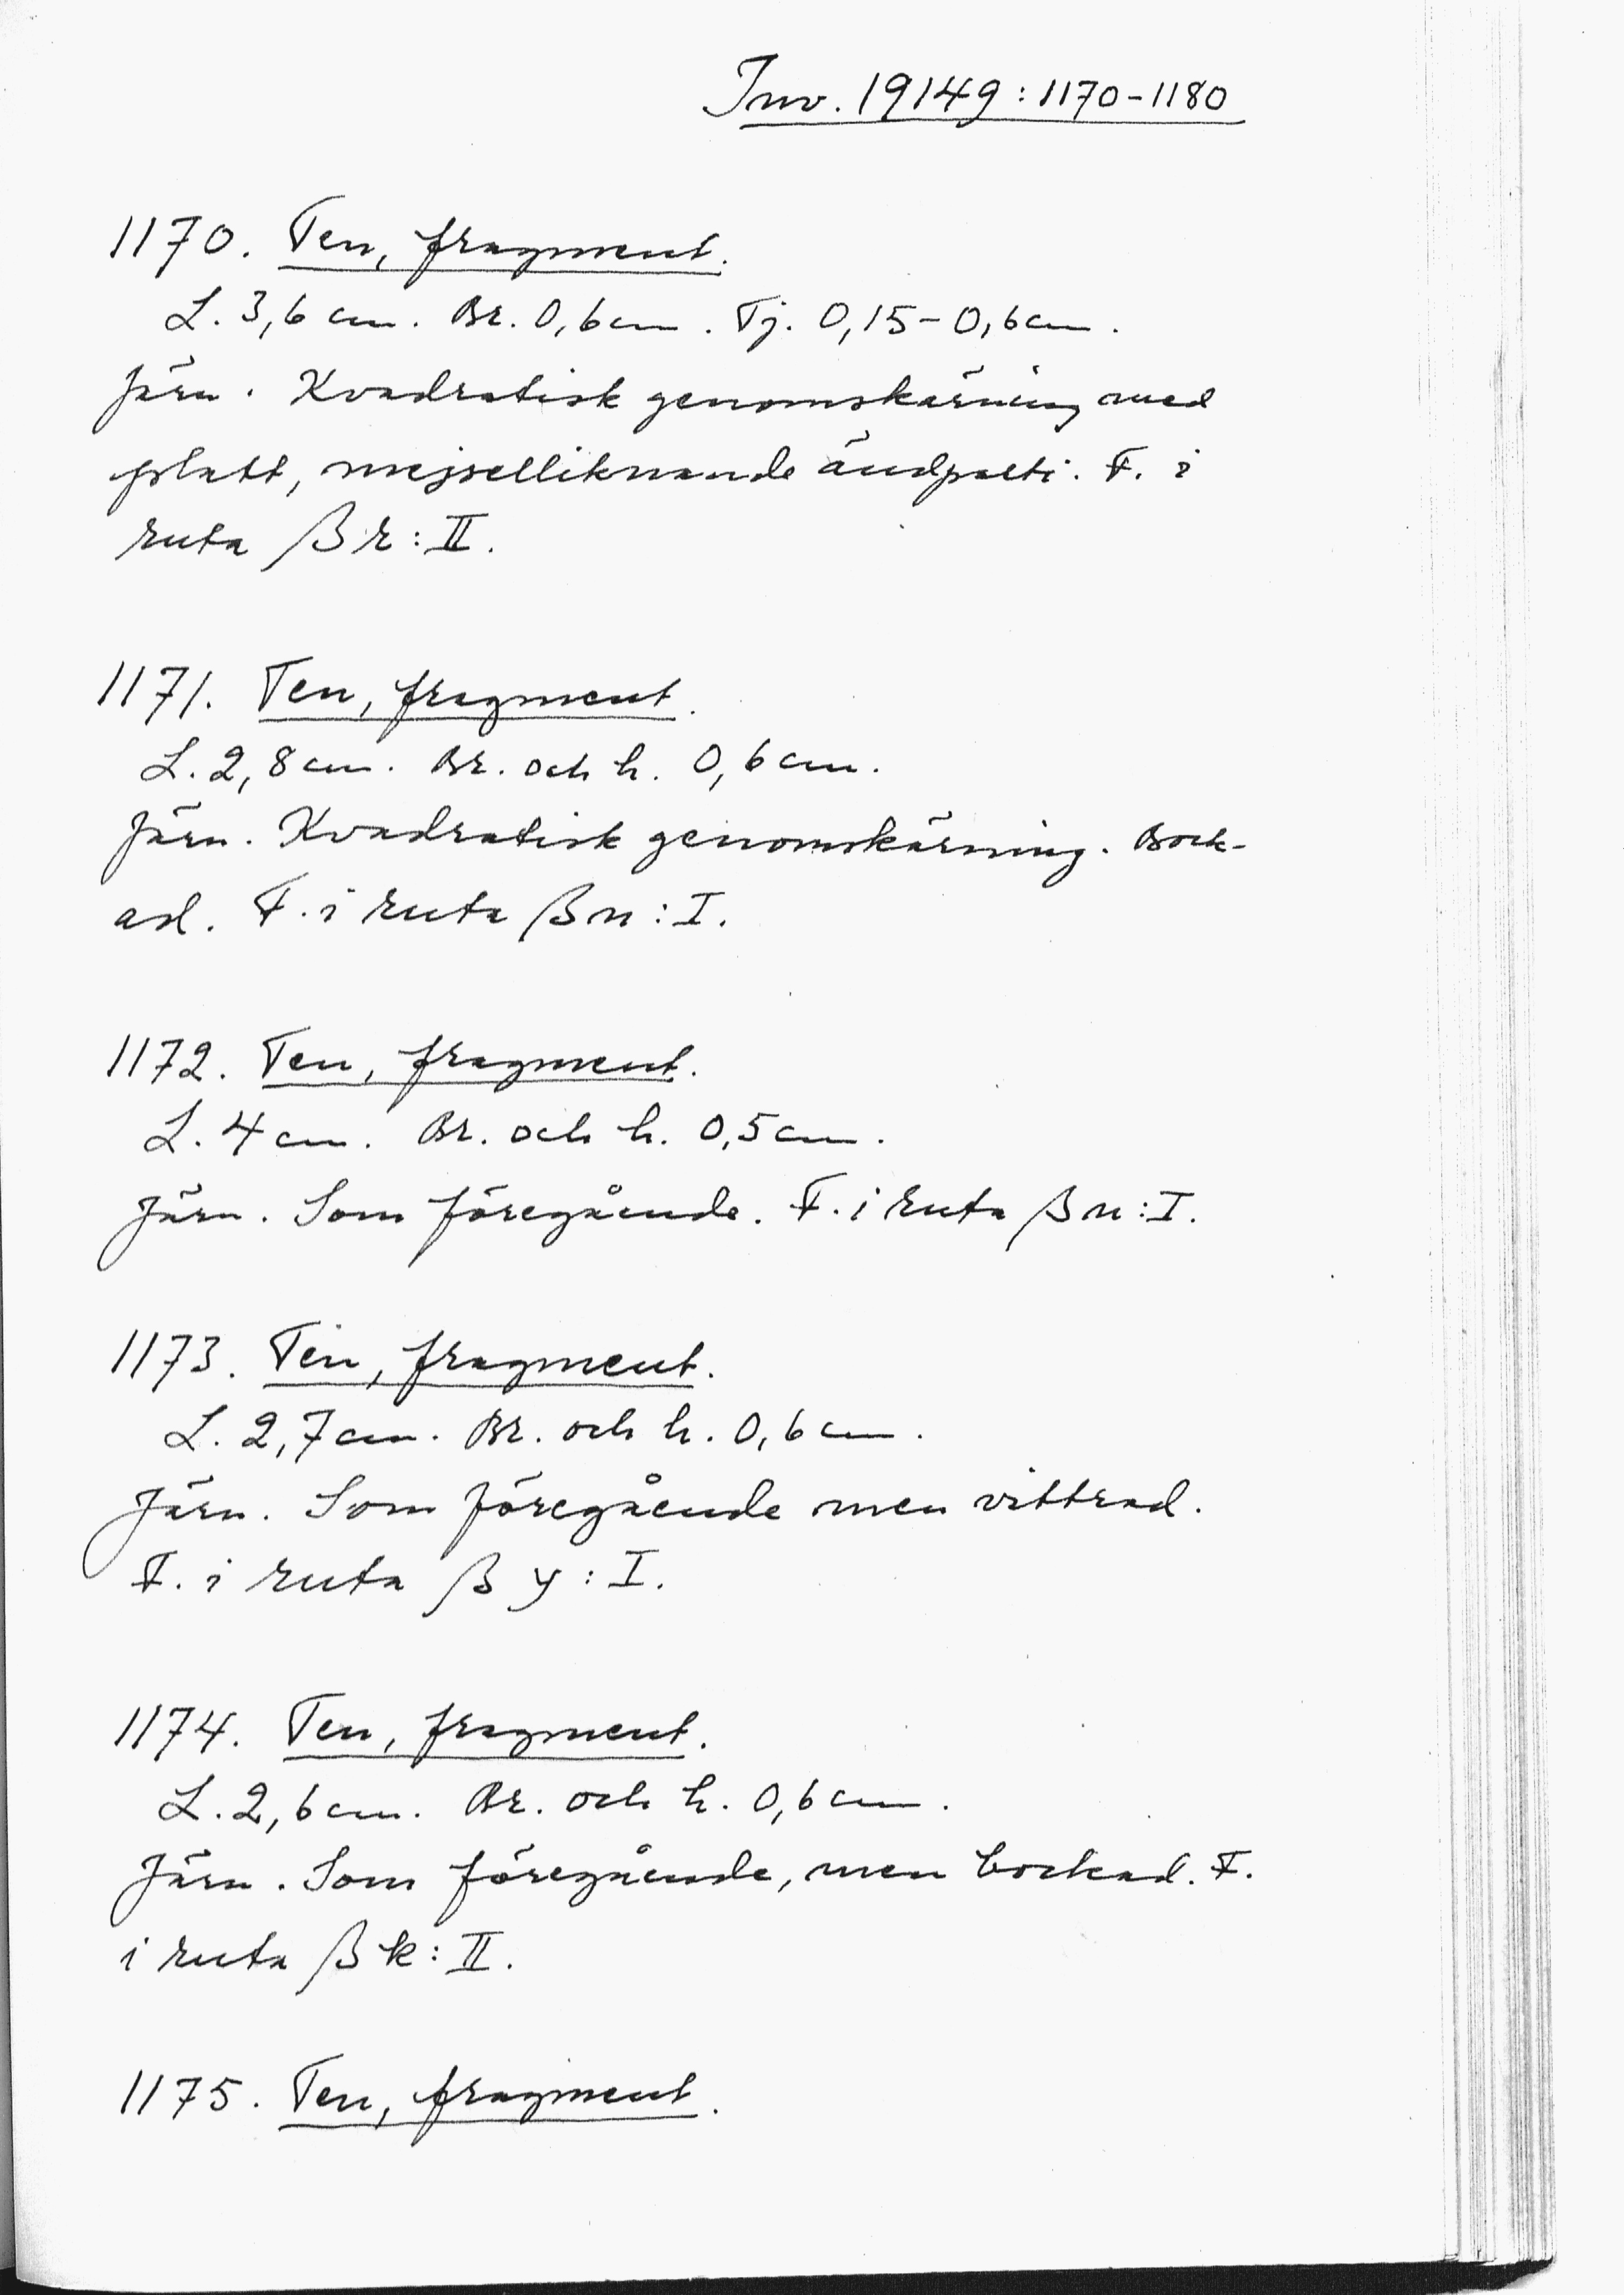 Inv. 19149:1170-1180
1170. Ten, fragment.
L. 3,6 cm. Br. 0,6 cm. Tj. 0,15-0,6 cm.
Järn. Kvadratisk genomskärning med
platt, mejselliknande ändparti. F. i
ruta βr:II.
1171. Ten, fragment.
L. 2,8 cm. Br. och h. 0,6 cm.
Järn. Kvadratisk genomskärning. Bock-
ad. F. i ruta βn:I.
1172. Ten, fragment.
L. 4 cm. Br. och h. 0,5 cm.
Järn. Som föregående. F. i ruta βn:I.
1173. Ten, fragment.
L. 2,7 cm. Br. och h. 0,6 cm.
Järn. Som föregående men vittrad.
F. i ruta βy:I.
1174. Ten, fragment.
L. 2,6 cm. Br. och h. 0,6 cm.
Järn. Som föregående, men bockad. F.
i ruta βk:II.
1175. Ten, fragment.